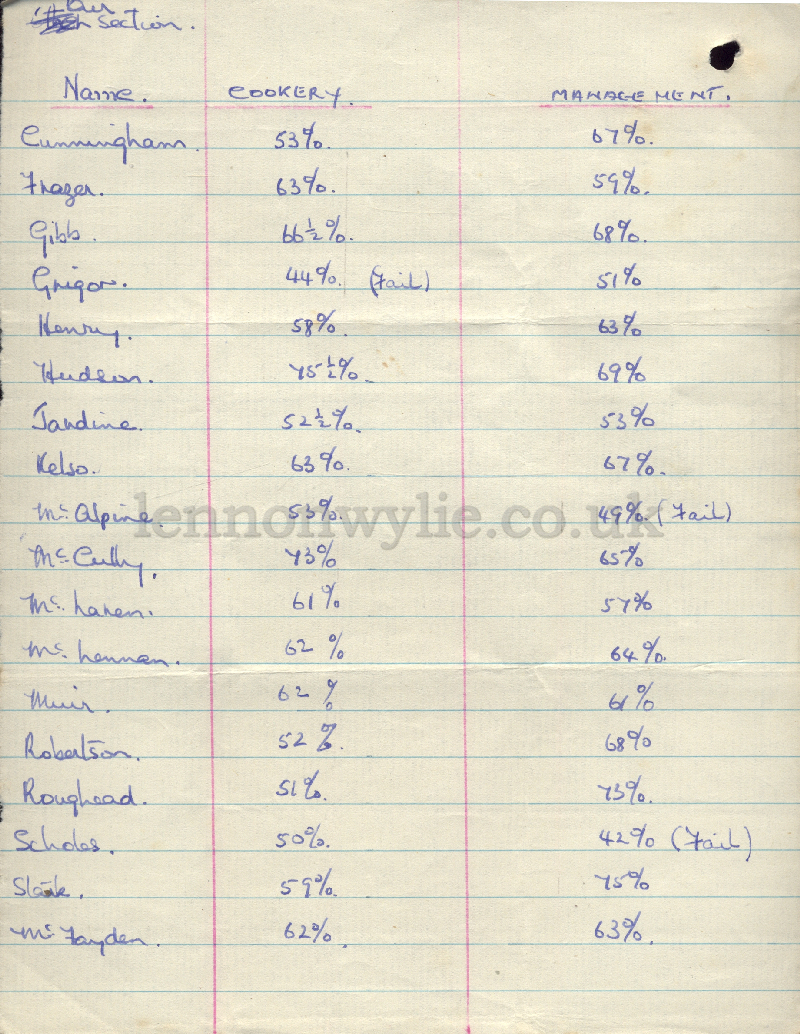 Our
Section.
Name. COOKERY. MANAGEMENT.
Cunningham. 53%. 67%.
Frazer. 63%. 59%.
Gibb. 66½%. 68%.
Grigor. 44%. (Fail) 51%
Henry. 58%. 63%
Hudson. 75½%. 69%
Jardine. 52½%. 53%
Kelso. 63%. 67%.
Mc Alpine. 53%. 49%. (Fail)
lennonwylie.co.uk
Mc Cully. 73% 65%
Mc Laren. 61% 57%
Mc Lennan. 62% 64%.
Muir. 62% 61%
Robertson. 52%. 68%
Roughead. 51%. 73%.
Scholes. 50%. 42% (Fail)
Slate. 59%. 75%
Mc Fayden. 62%. 63%.